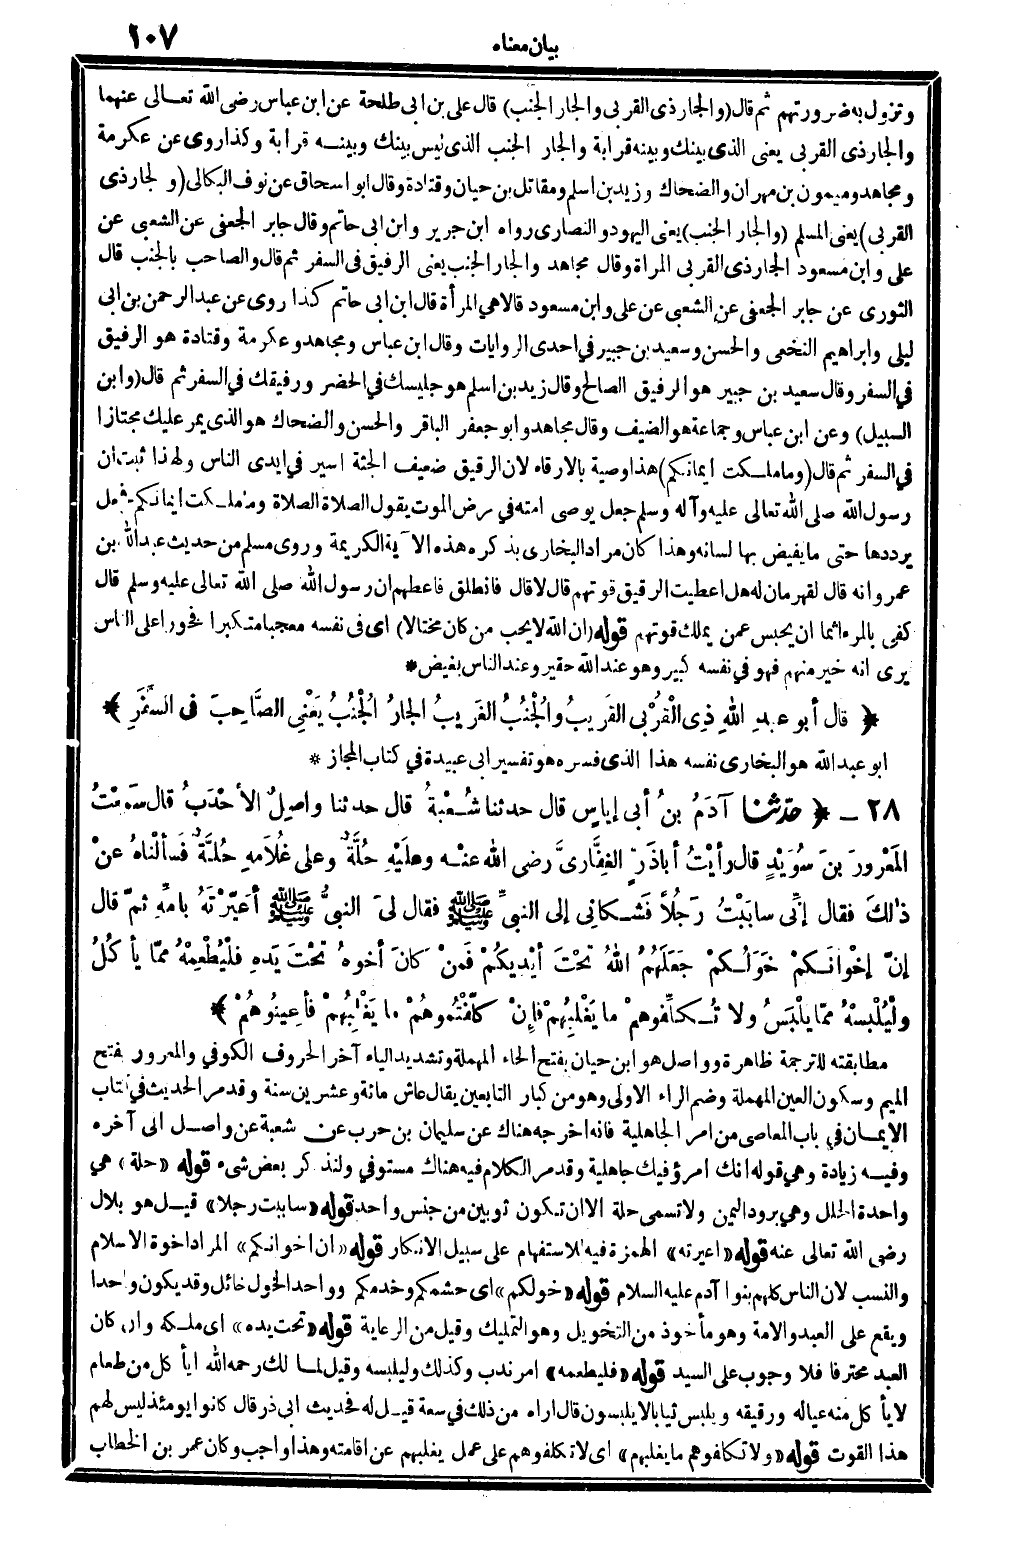 ١٠٧
بيان معناه
وتزول به ضرورتهم ثم قال (والجار ذي القربى والجار الجنب) قال علي بن ابى طلحة عن ابن عباس رضى الله تعالى عنهما
والجار ذى القربى يعنى الذى بينك وبينه قرابة والجار الجنب الذى ليس بينك وبينه قرابة وكذا روى عن عكرمة
ومجاهد وميمون بن مهران والضحاك وزيد بن اسلم ومقاتل بن حيان وقتادة وقال ابو اسحاق عن نوف البكالى (ولجار ذى
القربى) يعنى المسلم (والجار الجنب) يعنى اليهود والنصارى رواه ابن جرير وابن ابى حاتم وقال جابر الجعفى عن الشعبى عن
على وابن مسعود الجار ذى القربى المراة وقال مجاهد والجار الجنب يعنى الرفيق فى السفر ثم قال والصاحب بالجنب قال
الثورى عن جابر الجعفى عن الشعبى عن على وابن مسعود قالا هي المرأة قال ابن ابى حاتم كذا روى عن عبد الرحمن بن ابى
ليلى وابراهيم النخعى والحسن وسعيد بن جبير في احدى الروايات وقال ابن عباس ومجاهد وعكرمة وقتادة هو الرفيق
في السفر وقال سعيد بن جبير هو الرفيق الصالح وقال زيد بن اسلم هو جليسك في الحضر ورفيقك في السفر ثم قال (وابن
السبيل) وعن ابن عباس وجماعة هو الضيف وقال مجاهد وابو جعفر الباقر والحسن والضحاك هو الذى يمر عليك مجتازا
في السفر ثم قال (وما ملكت ايمانكم) هذا وصية بالارقاء لان الرقيق ضعيف الجثة اسير في ايدى الناس ولهذا ثبت ان
رسول الله صلى الله تعالى عليه وآله وسلم جعل يوصى امته في مرض الموت يقول الصلاة الصلاة وما ملكت ايمانكم فجعل
يرددها حتى ما يفيض بها لسانه وهذا كان مراد البخارى بذكره هذه الآية الكريمة وروى مسلم من حديث عبد الله بن
عمرو انه قال لقهرمان له هل اعطيت الرقيق قوتهم قال لا قال فانطلق فاعطهم ان رسول الله صلى الله تعالى عليه وسلم قال
كفى بالمرء اثما ان يحبس عمن يملك قوتهم قوله (ان الله لا يحب من كان مختالا) اى فى نفسه معجبا متكبرا فخورا على الناس
يرى انه خير منهم فهو في نفسه كبير وهو عند الله حقير وعند الناس بغيض *
﴿ قال أبو عبد اللهِ ذِي الْقُرْبى القَرِيبُ والْجُنُبُ الغَرِيبُ الجارُ الْجُنُبُ يَعْنِي الصَّاحِبَ فى السَّفَرِ ﴾
ابو عبد الله هو البخارى نفسه هذا الذى فسره هو تفسير ابى عبيدة في كتاب المجاز *
٢٨ - ﴿ حدّثنا آدَمُ بنُ أبى إياسٍ قال حدثنا شُعْبةُ قال حدثنا واصِلٌ الأحْدَبُ قال سَمِعْتُ
المَعْرورَ بنَ سُوَيْدٍ قال رأيْتُ أباذَرٍّ الغِفَارِىَّ رضى الله عنه وعلَيْهِ حُلَّةٌ وعلى غُلَامِهِ حُلَّةٌ فَسألْناهُ عنْ
ذٰلِكَ فقال إنِّى سابَبْتُ رَجُلاً فَشَكانِي إلى النبيِّ ﷺ فقال لىَ النبىُّ ﷺ أعَيَّرْتَهُ بامِّهِ ثمّ قال
إنّ إخْوَانَكمْ خَوَلُكمْ جَعَلَهُمُ اللهُ تَحْتَ أيْدِيكُمْ فَمَنْ كانَ أخوهُ تَحْتَ يَدِهِ فلْيُطْعِمْهُ ممّا يأكُلُ
ولْيُلْبِسْهُ ممّا يلْبَسُ ولا تُكَلِّفوهمْ ما يَغْلِبُهمْ فإنْ كلّفْتُموهُمْ ما يَغْلِبُهمْ فأعِينُوهُمْ ﴾
مطابقته للترجمة ظاهرة وواصل هو ابن حيان بفتح الحاء المهملة وتشديد الياء آخر الحروف الكوفي والمعرور بفتح
الميم وسكون العين المهملة وضم الراء الاولى وهو من كبار التابعين يقال عاش مائة وعشرين سنة وقد مر الحديث في كتاب
الايمان في باب المعاصى من امر الجاهلية فانه اخرجه هناك عن سليمان بن حرب عن شعبة عن واصل الى آخره
وفيه زيادة وهي قوله انك امرؤ فيك جاهلية وقد مر الكلام فيه هناك مستوفي ولنذكر بعض شىء قوله «حلة» هي
واحدة الحلل وهي برود اليمن ولا تسمى حلة الا ان تكون ثوبين من جنس واحد قوله «ساببت رجلا» قيل هو بلال
رضى الله تعالى عنه قوله «اعيرته» الهمزة فيه للاستفهام على سبيل الانكار قوله «ان اخوانكم» المراد اخوة الاسلام
والنسب لان الناس كلهم بنوا آدم عليه السلام قوله «خولكم» اى حشمكم وخدمكم وواحد الخول خائل وقد يكون واحدا
ويقع على العبد والامة وهو مأخوذ من التخويل وهو التمليك وقيل من الرعاية قوله «تحت يده» اى ملكه وان كان
العبد محترفا فلا وجوب على السيد قوله «فليطعمه» امر ندب وكذلك وليلبسه وقيل لمالك رحمه الله ايأكل من طعام
لا يأكل منه عياله ورقيقه ويلبس ثيابا لا يلبسون قال اراه من ذلك في سعة قيل له فحديث ابى ذر قال كانوا يومئذ ليس لهم
هذا القوت قوله «ولا تكلفوهم ما يغلبهم» اى لا تكلفوهم على عمل يغلبهم عن اقامته وهذا واجب وكان عمر بن الخطاب